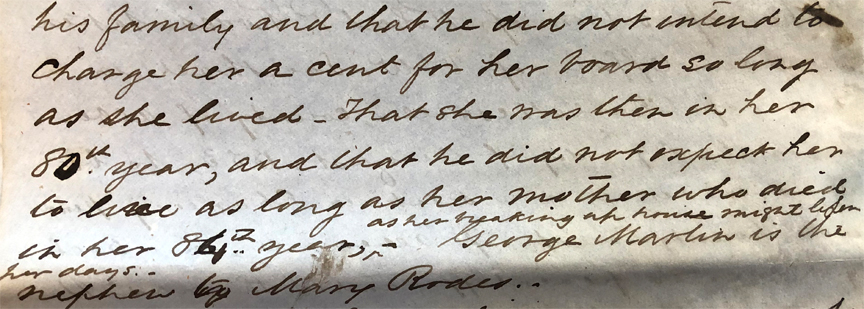 his family and that he did not intend to
charge her a cent for her board so long
as she lived - That she was then in her
80th year, and that he did not expect her
to live as long as her mother who died
as her breaking up house might lessen
in her 84th year, - George Martin is the
her days..
nephew by Mary Rodes..